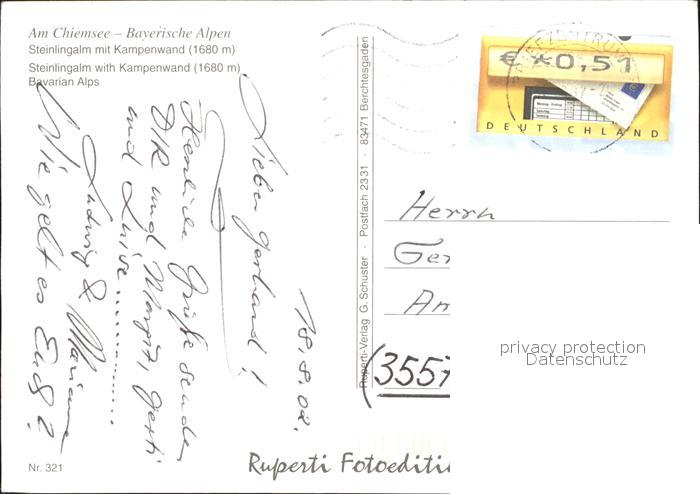 Am Chiemsee – Bayerische Alpen
Steinlingalm mit Kampenwand (1680 m)
Steinlingalm with Kampenwand (1680 m)
Bavarian Alps
18.8.02.
Lieber Gerhard!
Herzliche Grüße senden
Dir und Margit, Gerti
und Luise............
Ludwig & Marianne
Wie geht es Euch?
Nr. 321
Ruperti-Verlag G. Schuster · Postfach 2331 · 83471 Berchtesgaden
BRIEFZENTRUM
€ *0,51
DEUTSCHLAND
Herrn
Ger
Am
(3557
privacy protection
Datenschutz
Ruperti Fotoediti